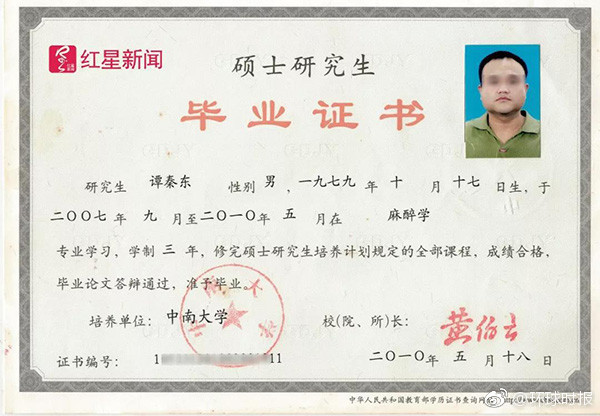 红星新闻
硕士研究生
毕业证书
研究生 谭秦东 性别 男，一九七九 年 十 月 十七 日生，于
二〇〇七年 九 月至二〇一〇年 五 月在 麻醉学
专业学习，学制 三 年，修完硕士研究生培养计划规定的全部课程，成绩合格，
毕业论文答辩通过，准予毕业。
培养单位： 中南大学 校(院、所)长： 黄伯云
证书编号： 1 11 二〇一〇年 五 月 十八 日
中华人民共和国教育部学历证书查询网
@环球时报